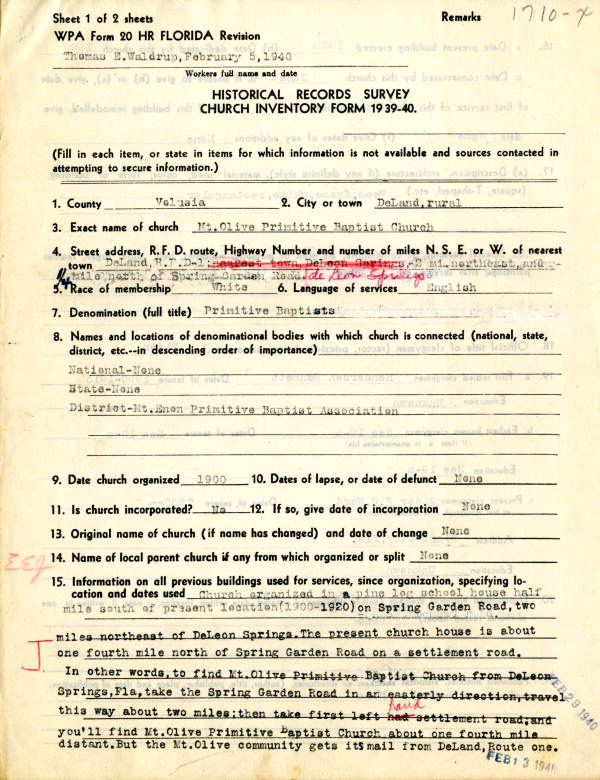 Sheet 1 of 2 sheets
Remarks 1710-X
WPA Form 20 HR FLORIDA Revision
Thomas E.Waldrup,February 5,1940
Workers full name and date
HISTORICAL RECORDS SURVEY
CHURCH INVENTORY FORM 1939-40.
(Fill in each item, or state in items for which information is not available and sources contacted in
attempting to secure information.)
1. County Volusia 2. City or town DeLand,rural
3. Exact name of church Mt.Olive Primitive Baptist Church
4. Street address, R.F.D. route, Highway Number and number of miles N. S. E. or W. of nearest
town DeLand,R.F.D-1;nearest town,DeLeon Springs,-2 mi.northeast,and
1/4 mile north of Spring Garden Road. de Leon Springs
5. Race of membership White 6. Language of services English
7. Denomination (full title) Primitive Baptists
8. Names and locations of denominational bodies with which church is connected (national, state,
district, etc.--in descending order of importance)
National-None
State-None
District-Mt.Enon Primitive Baptist Association
9. Date church organized 1900 10. Dates of lapse, or date of defunct None
11. Is church incorporated? No 12. If so, give date of incorporation None
13. Original name of church (if name has changed) and date of change None
EEJ
14. Name of local parent church if any from which organized or split None
15. Information on all previous buildings used for services, since organization, specifying lo-
cation and dates used Church organized in a pine log school house half
mile south of present location(1900-1920)on Spring Garden Road,two
miles northeast of DeLeon Springs.The present church house is about
one fourth mile north of Spring Garden Road on a settlement road.
In other words,to find Mt.Olive Primitive Baptist Church from DeLeon
Springs,Fla,take the Spring Garden Road in an easterly direction,travel
this way about two miles;then take first left had hand settlement road;and
you'll find Mt.Olive Primitive Baptist Church about one fourth mile
distant.But the Mt.Olive community gets its mail from DeLand,Route one.
FEB 29 1940
FEB 13 1940